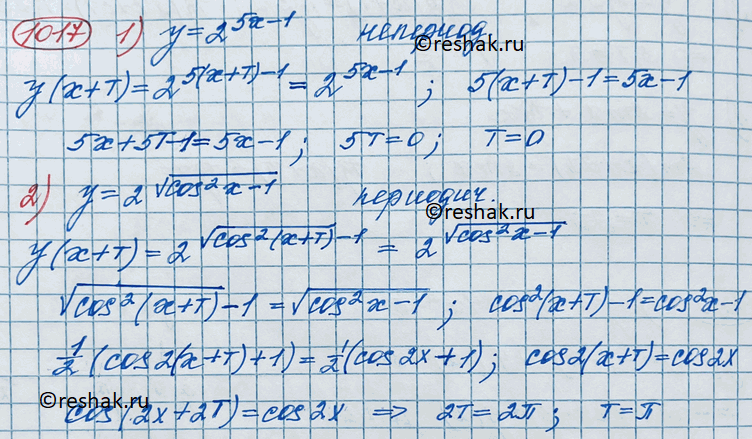 1017 1) y=2^{5x-1} непериод.
©reshak.ru
y(x+T)=2^{5(x+T)-1}=2^{5x-1}; 5(x+T)-1=5x-1
5x+5T-1=5x-1; 5T=0; T=0
2) y=2^{√cos²x-1} периодич.
©reshak.ru
y(x+T)=2^{√cos²(x+T)-1}=2^{√cos²x-1}
√cos²(x+T)-1=√cos²x-1; cos²(x+T)-1=cos²x-1
1/2(cos2(x+T)+1)=1/2(cos2x+1); cos2(x+T)=cos2x
©reshak.ru
cos(2x+2T)=cos2x ⇒ 2T=2π; T=π